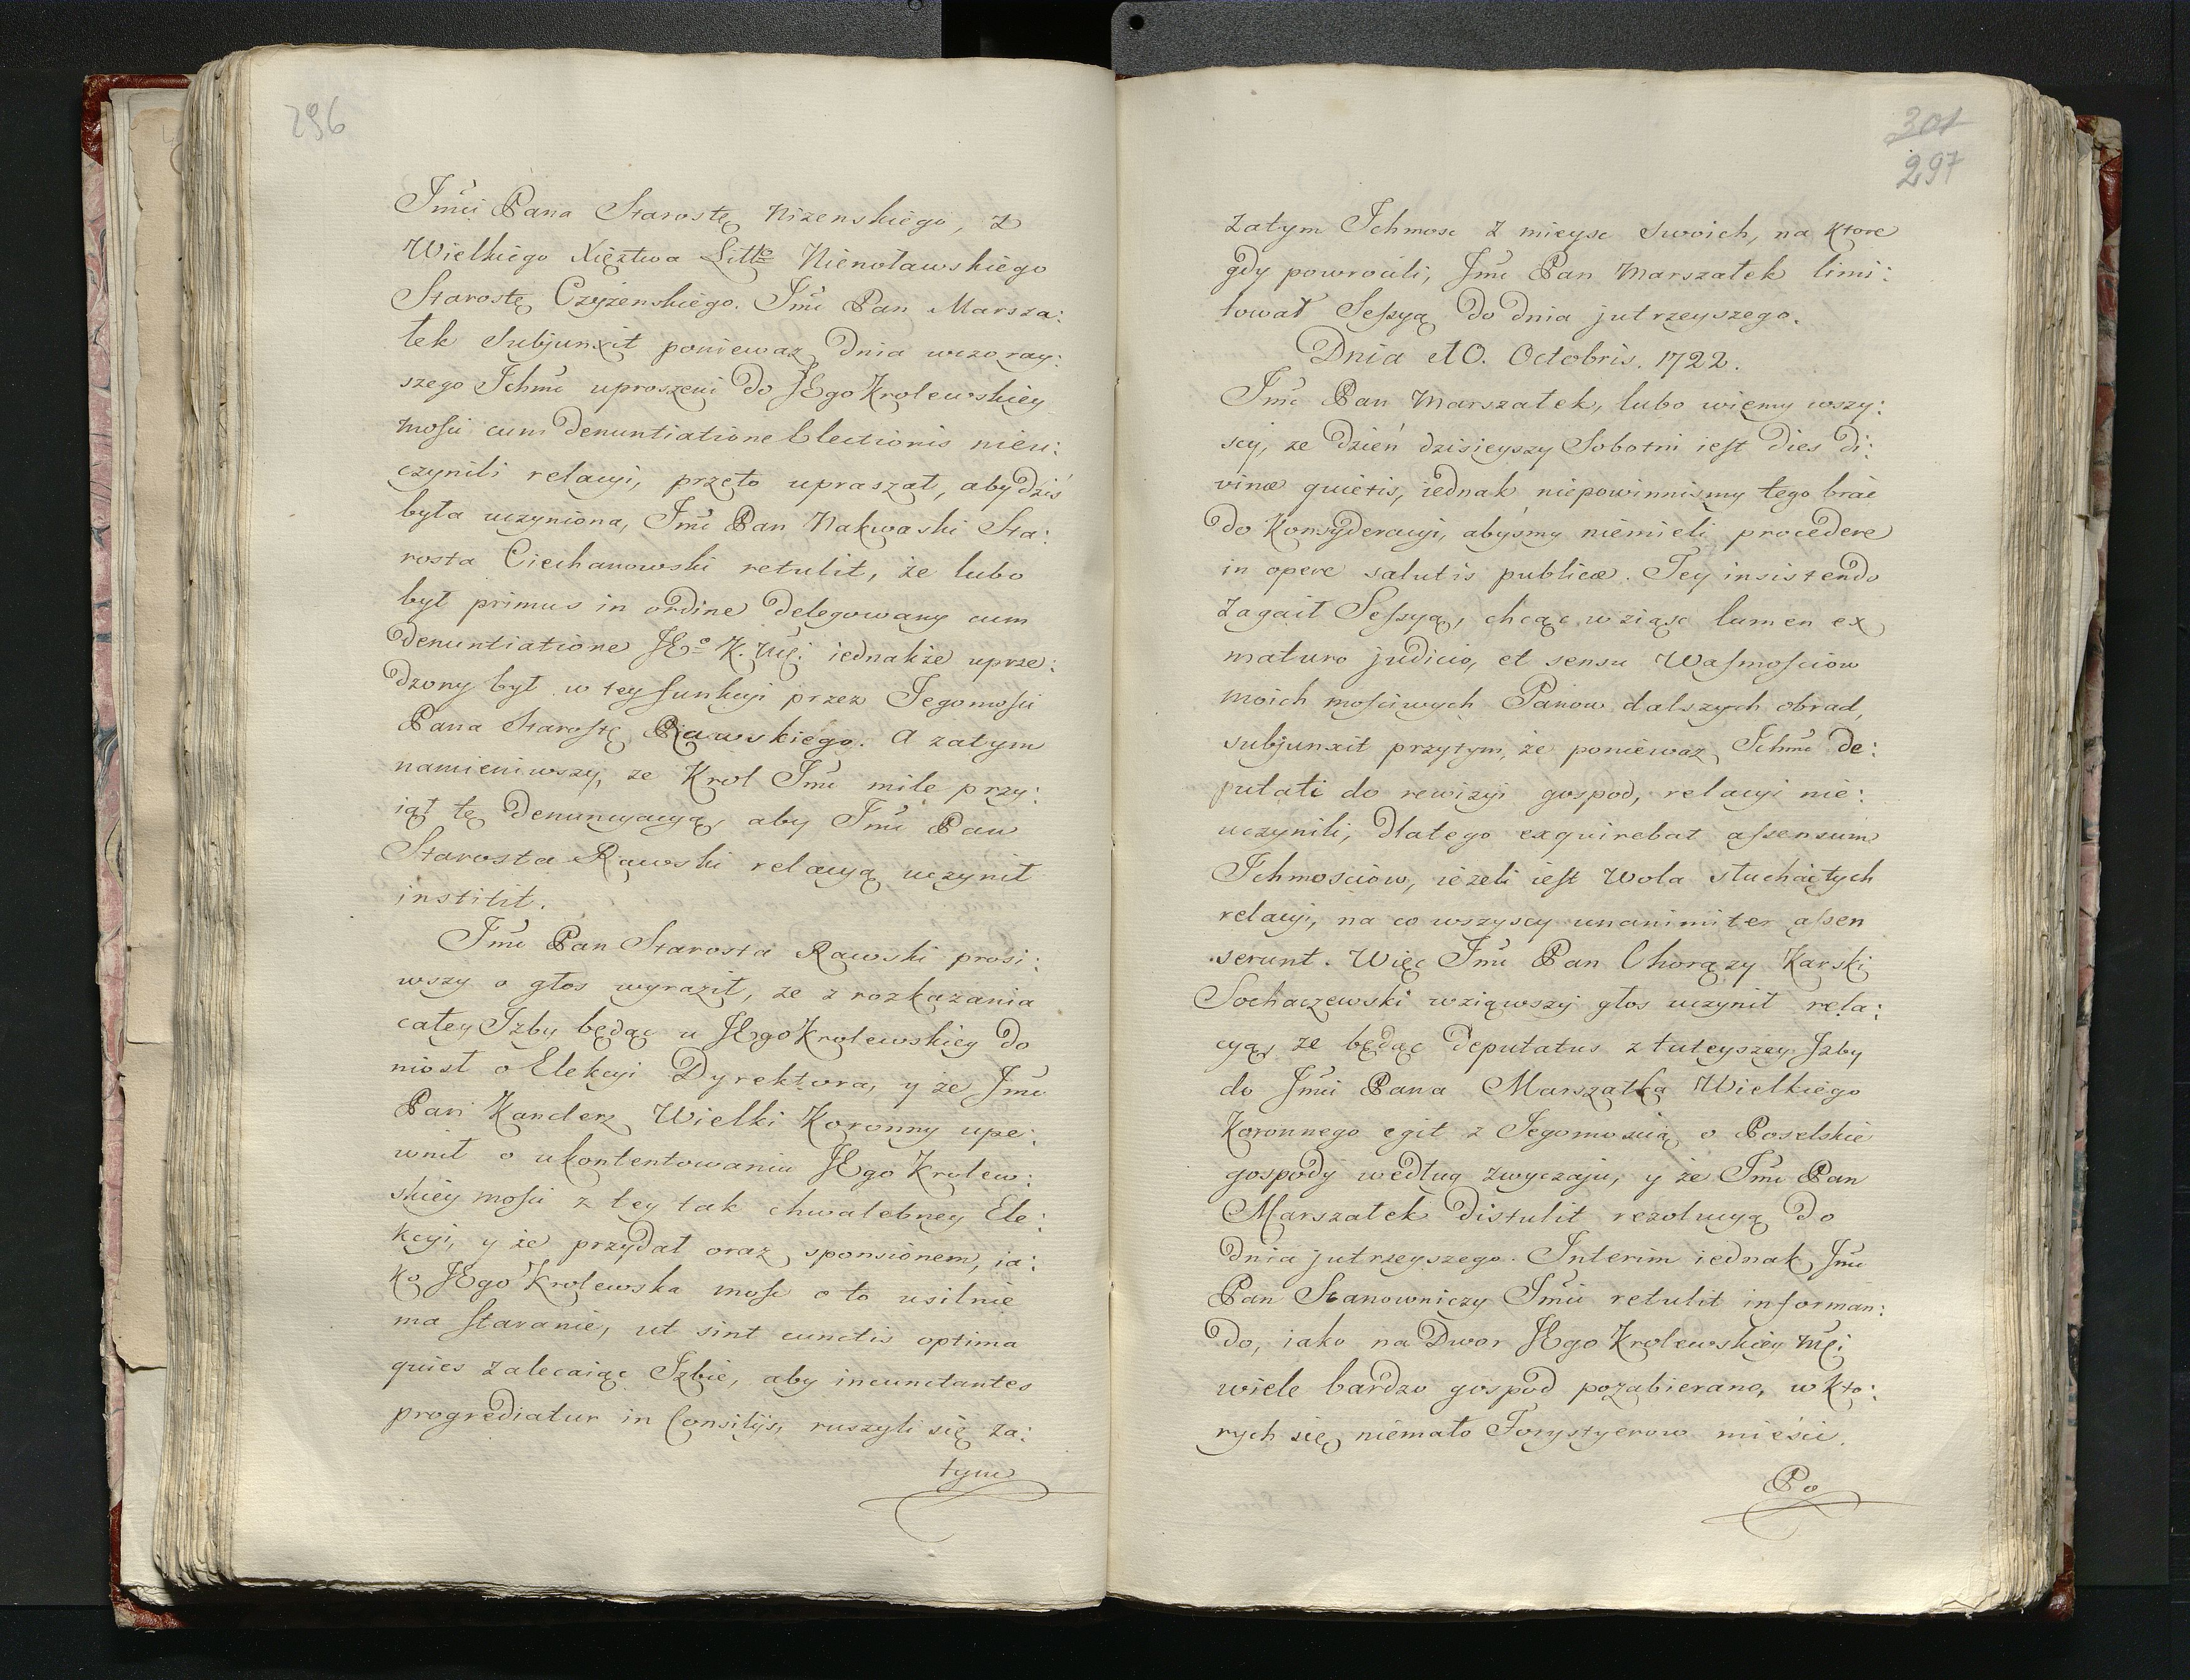 296
Jmci Pana Starostę Nizenskiego, z
Wielkiego Xięztwa Littº Nienotawskiego
Starostę Czyżenskiego. Jmć Pan Marsza:
łek subjunxit poniewaz dnia wczoray:
szego Ichmć uproszeni do JEgo Krolewskiey
Mości cum denuntiatione Electionis nieu:
czynili relacyi, przeto upraszał, aby dziś
była uczyniona, Jmć Pan Nakwaski Sta:
rosta Ciechanowski retulit, że lubo
był primus in ordine delegowany cum
denuntiatione JEº K. Mći iednakże uprze:
dzony był w tey funkcyi przez Jegomości
Pana Starostę Rawskiego. A zatym
namieniwszy, ze Krol Jmć mile przy:
iął tę denuncyacyą, aby Jmć Pan
Starosta Rawski relacyą uczynił
institit.
Jmć Pan Starosta Rawski prosi:
wszy o głos wyraził, ze z rozkazania
całey Izby będąc u JEgo Krolewskiey do
niosł o Elekcyi Dyrektora, y że Jmć
Pan Kanclerz Wielki Koronny upe:
wnił o ukontentowaniu JEgo Krolew:
skiey mości z tey tak chwalebney Ele:
kcyi, y że przydał oraz sponsionem, ia:
ko JEgo Krolewska mość o to usilnie
ma staranie, ut sint cunctis optima
quies zalecaiąc Izbie, aby incunctantes
progrediatur in Consilijs, ruszyli się za:
tym
301
297
zatym Ichmość z mieysc swoich, na ktore
gdy powrocili, Jmć Pan Marszałek limi:
tował Sessyą do dnia jutrzeyszego.
Dnia 10. Octobris. 1722.
Jmć Pan Marszałek, lubo wiemy wszy:
scy, ze dzień dzisieyszy Sobotni iest dies di:
vinæ quietis, iednak niepowinnismy tego brać
do Konsyderacyi, abyśmy niemieli procedere
in opere salutis publicæ. Tey insistendo
zagaił Sessyą, chcąc wziąsc lumen ex
maturo judicio, et sensu Wasmosciow
moich mościwych Panow dalszych obrad,
subjunxit przytym, że poniewaz Ichmć de:
putati do rewizyi gospod, relacyi nie:
uczynili, dlatego exquirebat assensum
Ichmościow, ieżeli iest wola słuchać tych
relacyi, na co wszyscy unanimiter assen
serunt. Więc Jmć Pan Chorązy Karski
Sochaczewski wziąwszy głos uczynił rela:
cyą, ze będąc deputatus z tuteyszey Izby
do Jmci Pana Marszałka Wielkiego
Koronnego egit z Jegomością o Poselskie
gospody według zwyczaju, y że Jmć Pan
Marszałek distulit rezolucyą do
dnia jutrzeyszego. Interim iednak Jmć
Pan Stanowniczy Jmci retulit informan:
do, iako na Dwor JEgo Krolewskiey Mći
wiele bardzo gospod pozabierano, w kto:
rych się niemało Forysztyerow mieści.
Po